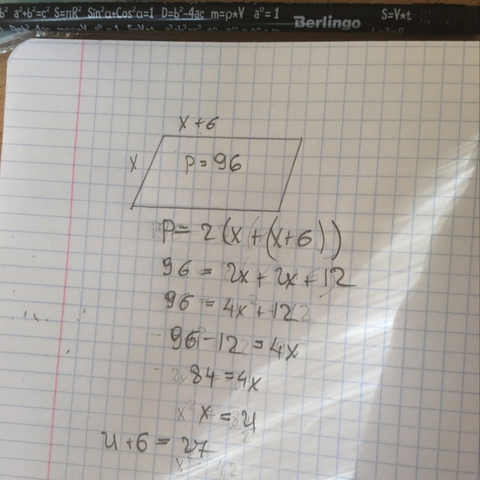 a²+b²=c² S=πR² Sin²α+Cos²α=1 D=b²-4ac m=ρ*V a⁰=1
Berlingo
S=V*t
x+6
x
p=96
P= 2(x+(x+6))
96 = 2x+2x+12
96 = 4x+12
96-12=4x
84=4x
x=21
21+6=27